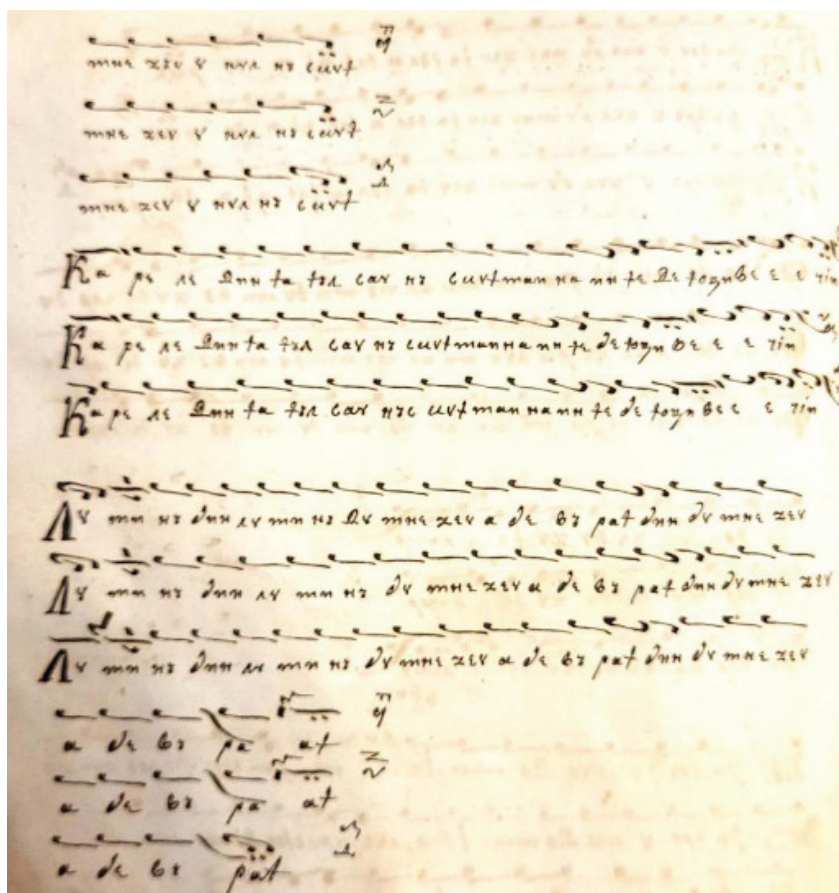 мне зеꙋ ꙋ нꙋл нъ скꙋт
мне зеꙋ ꙋ нꙋл нъ скꙋт
мне зеꙋ ꙋ нꙋл нъ скꙋт
Ка ре ле дин та тъл саꙋ нъ скꙋт маи на ин те де тоци ве е е чіи
Ка ре ле дин та тъл саꙋ нъ скꙋт маи на ин те де тоци ве е е чіи
Ка ре ле дин та тъл саꙋ нъ скꙋт маи на ин те де тоци ве е е чіи
Лꙋ ми нъ дин лꙋ ми нъ дꙋ мне зеꙋ а де въ рат дин дꙋ мне зеꙋ
Лꙋ ми нъ дин лꙋ ми нъ дꙋ мне зеꙋ а де въ рат дин дꙋ мне зеꙋ
Лꙋ ми нъ дин лꙋ ми нъ дꙋ мне зеꙋ а де въ рат дин дꙋ мне зеꙋ
а де въ ра ат
а де въ ра ат
а де въ рат